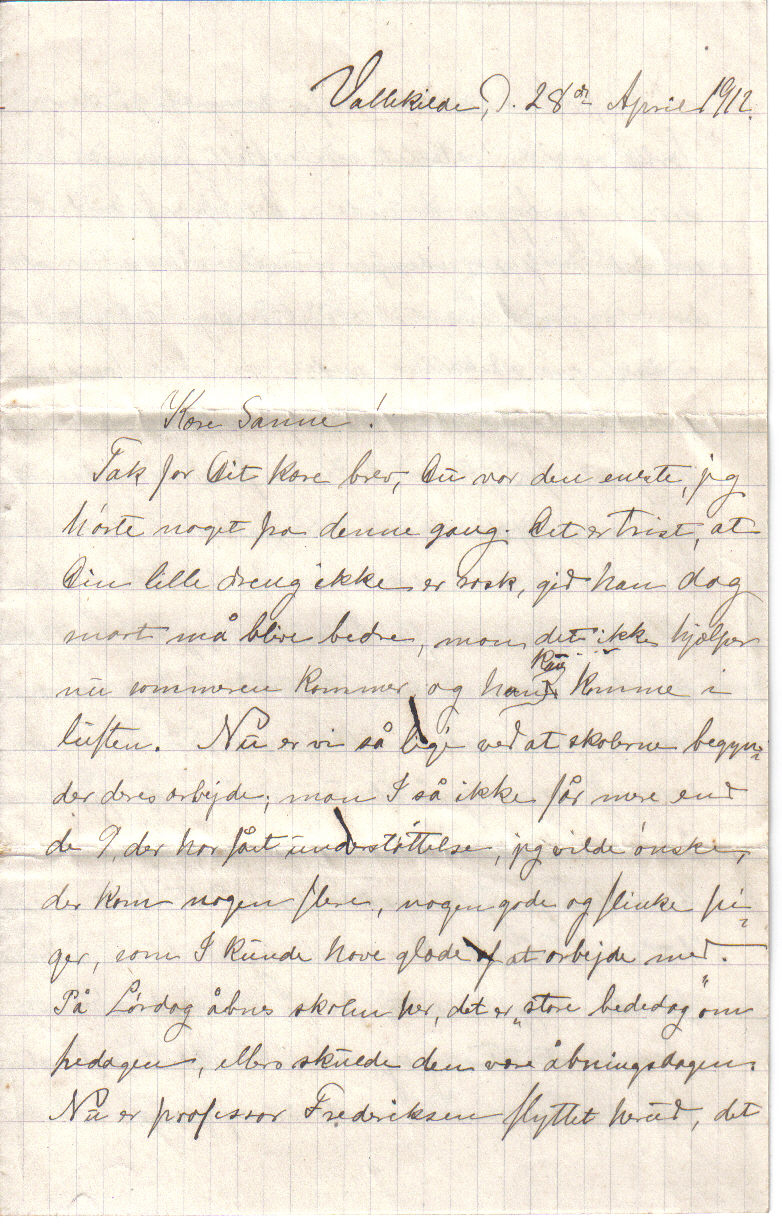 Vallekilde, d. 28de April 1912.
Kære Sanne!
Tak for Dit kære brev, Du var den eneste, jeg
hørte noget fra denne gang. Det er trist, at
Din lille dreng ikke er rask, gid han dog
snart må blive bedre, mon det ikke hjælper
nu sommeren kommer og han kan komme i
luften. Nu er vi så lige ved at skolerne begyn-
der deres arbejde; mon I så ikke får mere end
de 9, der har fået understøttelse, jeg vilde ønske,
der kom nogen flere, nogen gode og flinke pi-
ger, som I kunde have glæde af at arbejde med.
På Lørdag åbnes skolen her, det er "store bededag" om
fredagen, ellers skulde den være åbningsdagen.
Nu er professor Frederiksen flyttet herud, det